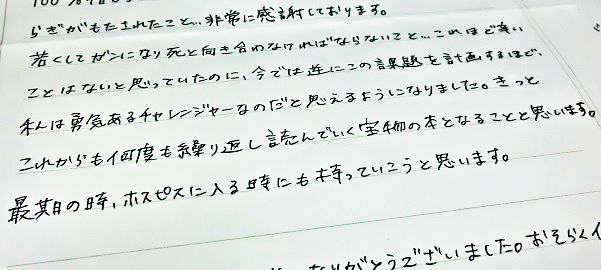 らぎがもたされたこと…非常に感謝しております。
若くしてガンになり死と向き合わなければならないこと…これほど辛い
ことはないと思っていたのに、今では逆にこの課題を計画するほど、
私は勇気あるチャレンジャーなのだと思えるようになりました。きっと
これからも何度も繰り返し読んでいく宝物の本となることと思います。
最期の時、ホスピスに入る時にも持っていこうと思います。
りがとうございました。おそらく